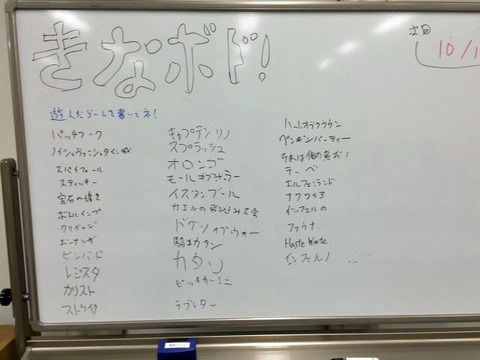 きなボド!
次回
10/1
遊んだゲームを書いてネ!
パッチワーク
ノイシュヴァンシュタイン城
スパイフォール
スティッキー
宝石の煌き
ボムレイング
クリベッジ
ピンバード
レジスタ
カリスト
ストライク
キャプテンリノ
スプラッシュ
オロンゴ
モールオブホラー
イスタンブール
カエルの飛び込み大会
ドッグオブウォー
騎士カタン
カタン
ピッチカーミニ
ラブレター
ハートオブクラウン
ペンギンパーティー
それは俺の魚だ!
テーベ
エルフェンランド
アクワイア
インフェルノ
ファウナ
Haste Worte
インフェルノ